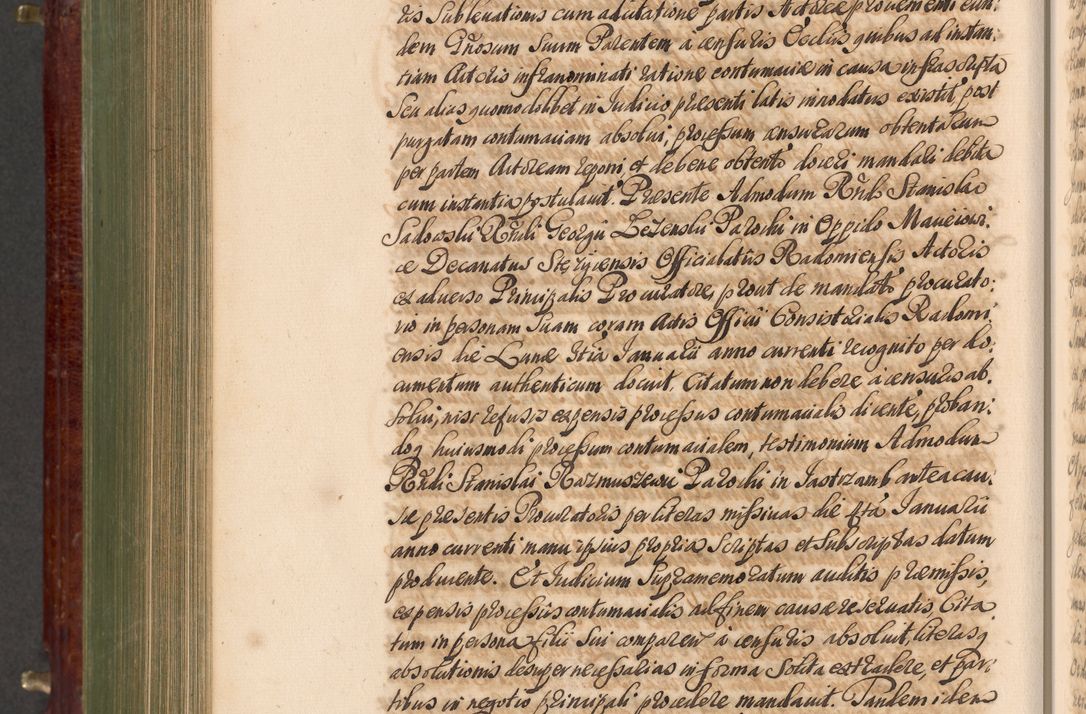 tis Sublevationis cum adcitatione partis Actoreæ provenienti eun:
dem Gnosum Suum Parentem à censuris Ecclius quibus ad instan:
tiam Actoris infranominati ratione contumaciæ in causa infrascripta
Seu alias quomodolibet in Judicio præsenti latis innodatus existit, post
purgatam contumaciam absolvi; processum censurarum obtentarum
per partem Actoream reponi, et de bene obtento doceri mandari debita
cum instantia postulavit. Præsente Admodum Rndo Stanislao
Sadowski Rndi Georgii Zezenski Parochi in Oppido Macieiowi:
ce Decanatus Stezycensis Officialatus Radomiensis Actoris
ex adverso Principalis Procuratore, prout de mandato procurato:
rio in personam Suam coram Actis Officii Consistorialis Radomi:
ensis die Lunæ 3tia Januarii anno currenti recognito per do:
cumentum authenticum docuit. Citatum non debere à censuris ab:
solvi, nisi refusis expensis processus contumacialis dicente, proban:
doq huiusmodi processum contumacialem, testimonium Admodum
Rndi Stanislai Razmuszewii Parochi in Jastrzamb antea cau:
sæ præsentis Procuratoris per literas missivas die 4ta Januarii
anno currenti manu ipsius propria Scriptas et Subscriptas datum
producente. Et Judicium Supramemoratum auditis præmissis,
expensis processus contumacialis ad finem causæ reservatis, Cita:
tum in persona filii Sui comparen à censuris absolvit, literasq
absolutionis desuper necessarias in forma Solita extradere, et par:
tibus in negotio principali procedere mandavit. Tandem idem